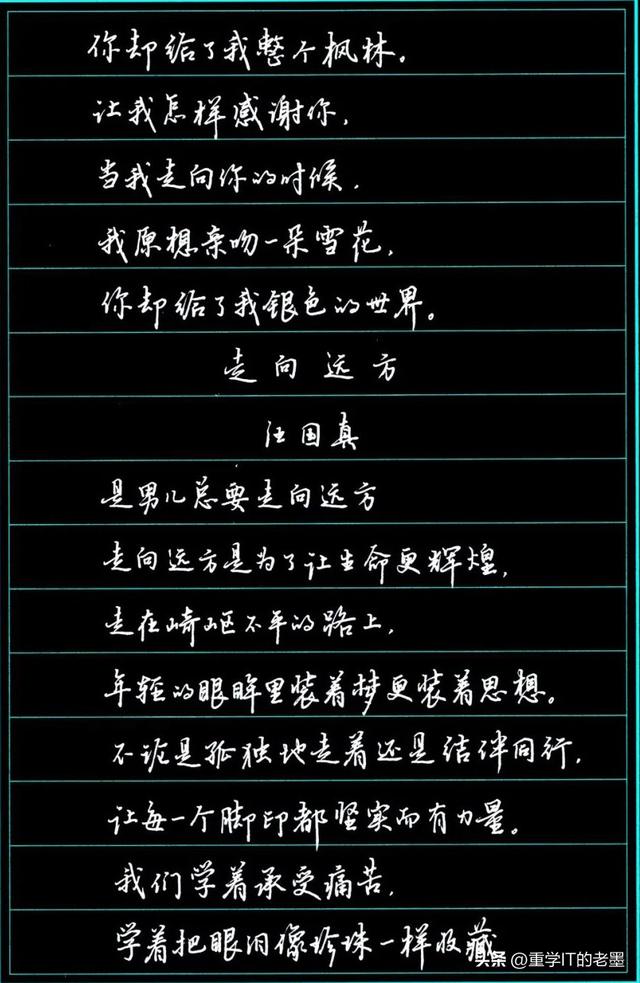 你却给了我整个枫林。
让我怎样感谢你，
当我走向你的时候，
我原想亲吻一朵雪花，
你却给了我银色的世界。
走向远方
汪国真
是男儿总要走向远方
走向远方是为了让生命更辉煌，
走在崎岖不平的路上，
年轻的眼眸里装着梦更装着思想。
不论是孤独地走着还是结伴同行，
让每一个脚印都坚实而有力量。
我们学着承受痛苦，
学着把眼泪像珍珠一样收藏
头条 @重学IT的老墨